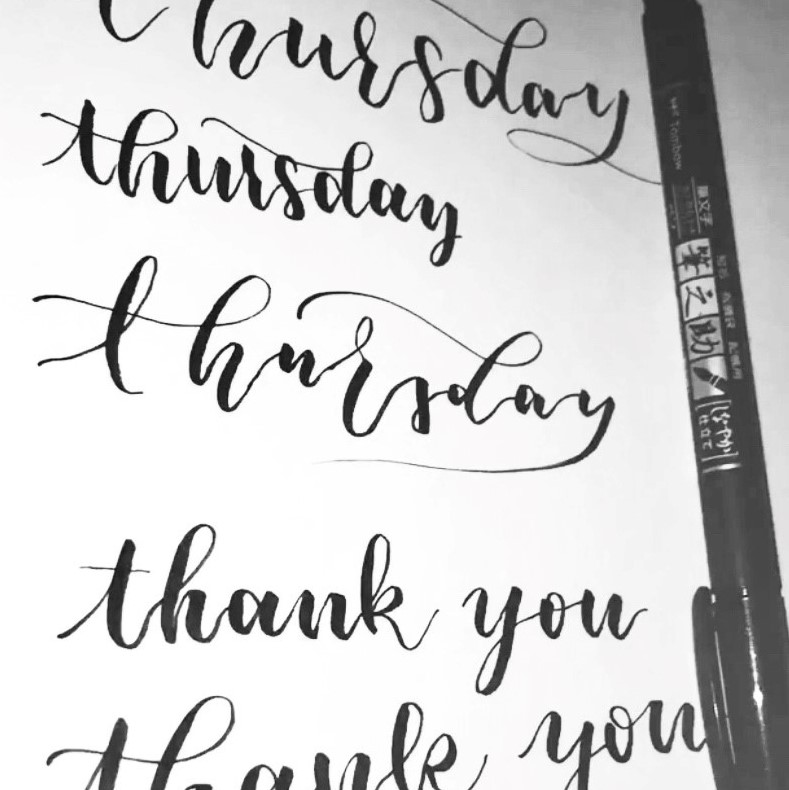 thursday
thursday
thursday
thank you
thank you
Tombow
筆之助
しっかり仕立て